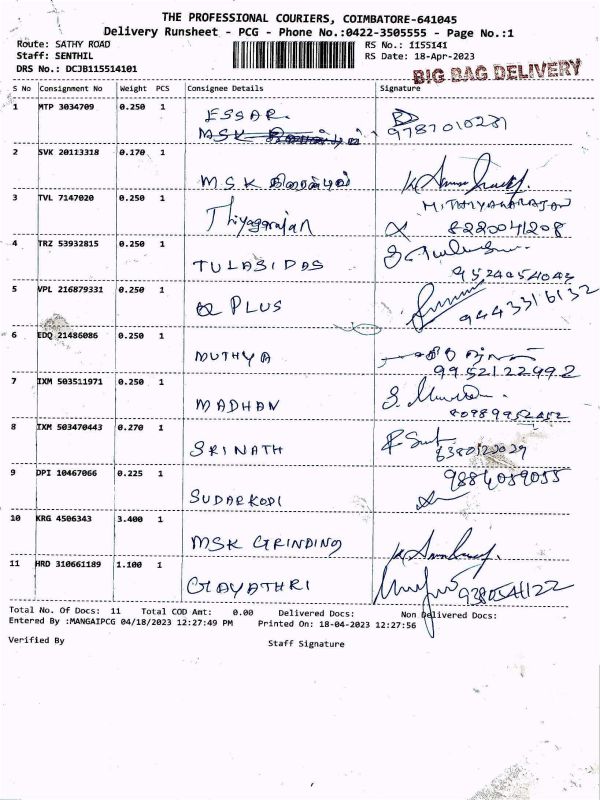 THE PROFESSIONAL COURIERS, COIMBATORE-641045
Delivery Runsheet - PCG - Phone No.:0422-3505555 - Page No.:1
Route: SATHY ROAD
RS No.: 1155141
Staff: SENTHIL
RS Date: 18-Apr-2023
DRS No.: DCJB115514101
BIG BAG DELIVERY
S No Consignment No Weight PCS Consignee Details Signature
1 MTP 3034709 0.250 1 ESSAR
MSK
9787010231
2 SVK 20113318 0.170 1 M.S.K
3 TVL 7147020 0.250 1 Thiyagarajan M.THIYAGARAJAN
8220041208
4 TRZ 53932815 0.250 1 TULASIDAS
9524054043
5 VPL 216879331 0.250 1 Q PLUS 9443316132
6 EDQ 21486086 0.250 1 MUTHYA
9952122992
7 IXM 503511971 0.250 1 MADHAN
8 IXM 503470443 0.270 1 SRINATH
9 DPI 10467066 0.225 1 SUDARKODI 9884059055
10 KRG 4506343 3.400 1 MSK GRINDING
11 HRD 310661189 1.100 1 GAYATHRI 9380541122
Total No. Of Docs: 11 Total COD Amt: 0.00 Delivered Docs: Non Delivered Docs:
Entered By :MANGAIPCG 04/18/2023 12:27:49 PM Printed On: 18-04-2023 12:27:56
Verified By Staff Signature